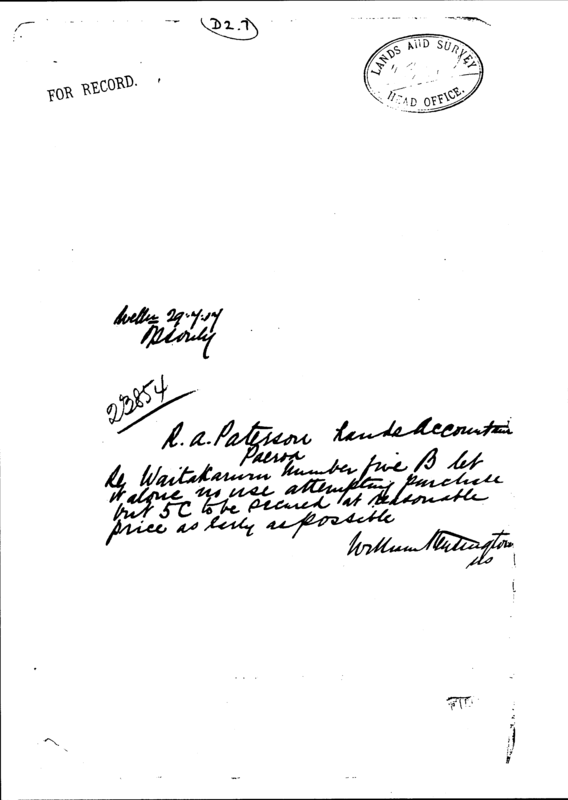 D2.1
LANDS AND SURVEY
HEAD OFFICE.
FOR RECORD.
29.4.04
23854
R. A. Paterson Lands Accountant
Paeroa
Re Waitakaruru Number five B let
it alone no use attempting purchase
but 5C to be secured at reasonable
price as early as possible
William Kensington